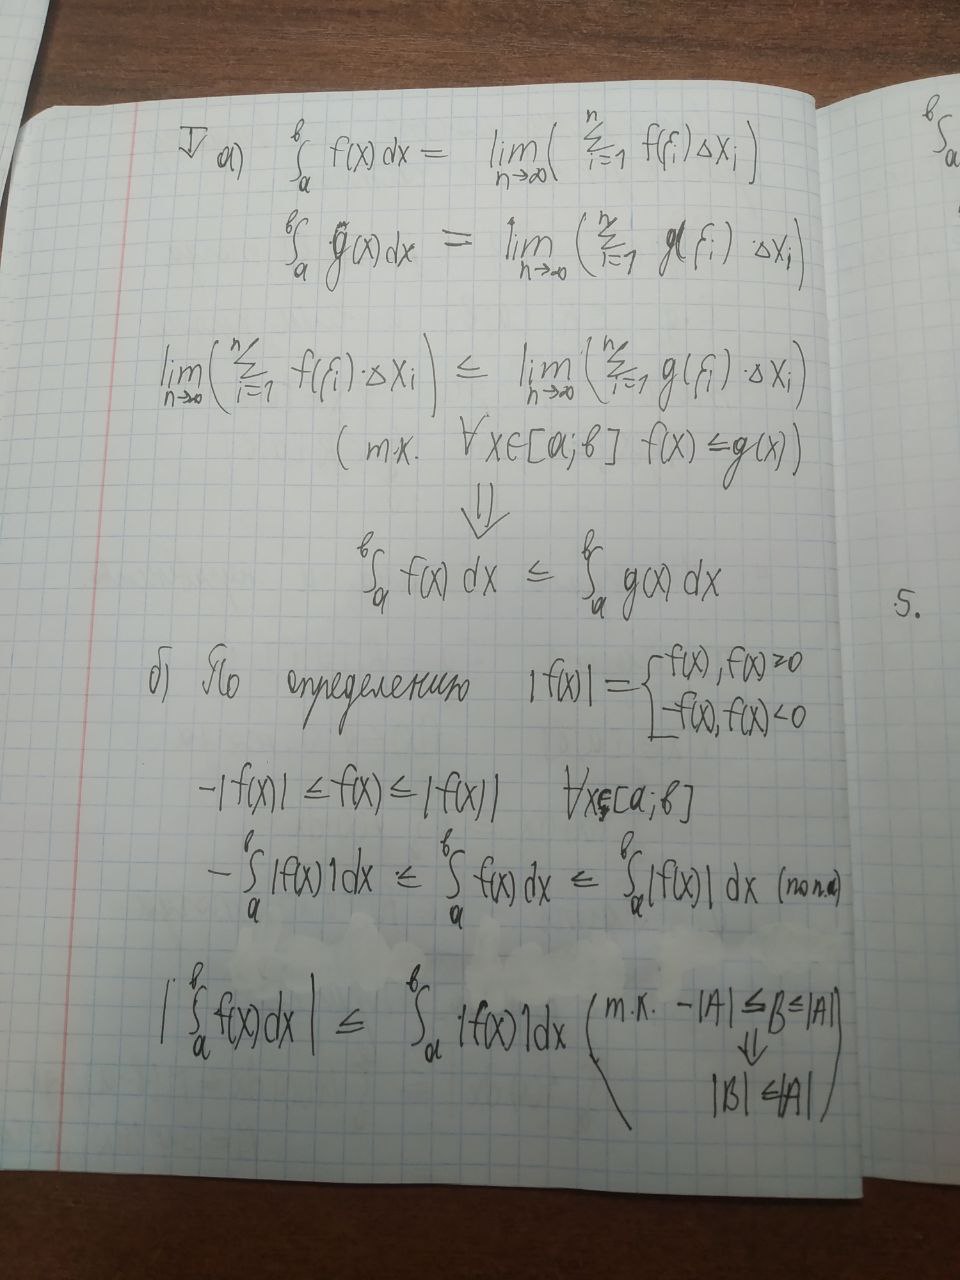 ∇ а) ∫ₐᵇ f(x) dx = lim_{n→∞} ( Σ_{i=1}^{n} f(ξᵢ) Δxᵢ )
∫ₐᵇ g(x) dx = lim_{n→∞} ( Σ_{i=1}^{n} g(ξᵢ) · Δxᵢ )
lim_{n→∞} ( Σ_{i=1}^{n} f(ξᵢ) · Δxᵢ ) ≤ lim_{n→∞} ( Σ_{i=1}^{n} g(ξᵢ) · Δxᵢ )
( т.к. ∀x∈[a;b] f(x) ≤ g(x) )
⇓
∫ₐᵇ f(x) dx ≤ ∫ₐᵇ g(x) dx
б) По определению |f(x)| = [ f(x), f(x) ≥ 0
-f(x), f(x) < 0
-|f(x)| ≤ f(x) ≤ |f(x)| ∀x∈[a;b]
- ∫ₐᵇ |f(x)| dx ≤ ∫ₐᵇ f(x) dx ≤ ∫ₐᵇ |f(x)| dx (по п.а)
| ∫ₐᵇ f(x) dx | ≤ ∫ₐᵇ |f(x)| dx ( т.к. -|A| ≤ B ≤ |A|
⇓
|B| ≤ |A| )
∫ₐᵇ
5.